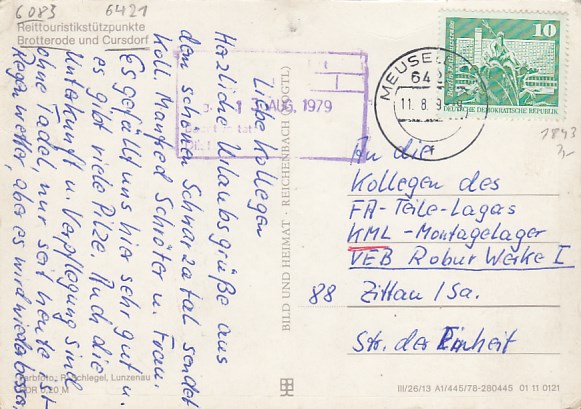 6083 6421
Reittouristikstützpunkte
Brotterode und Cursdorf
Liebe Kollegen
Herzliche Urlaubsgrüße aus
dem schönen Schwarzatal sendet
Koll. Manfred Schröter u. Frau.
Es gefällt uns hier sehr gut u.
es gibt viele Pilze. Auch die
Unterkunft u. Verpflegung sind
ohne Tadel, nur seit heute ist
Regenwetter, aber es wird wieder besser.
Farbfoto: R. Schlegel, Lunzenau
0,20 M
BILD UND HEIMAT · REICHENBACH (VOGTL)
1 3. AUG. 1979
MEUSE
642
11. 8.
10
DEUTSCHE DEMOKRATISCHE REPUBLIK
1843
An die
Kollegen des
FA-Teile-Lagers
KML-Montagelager
VEB Robur Werke I
88 Zittau/Sa.
Str. der Einheit
III/26/13 A1/445/78-280445 01 11 0121